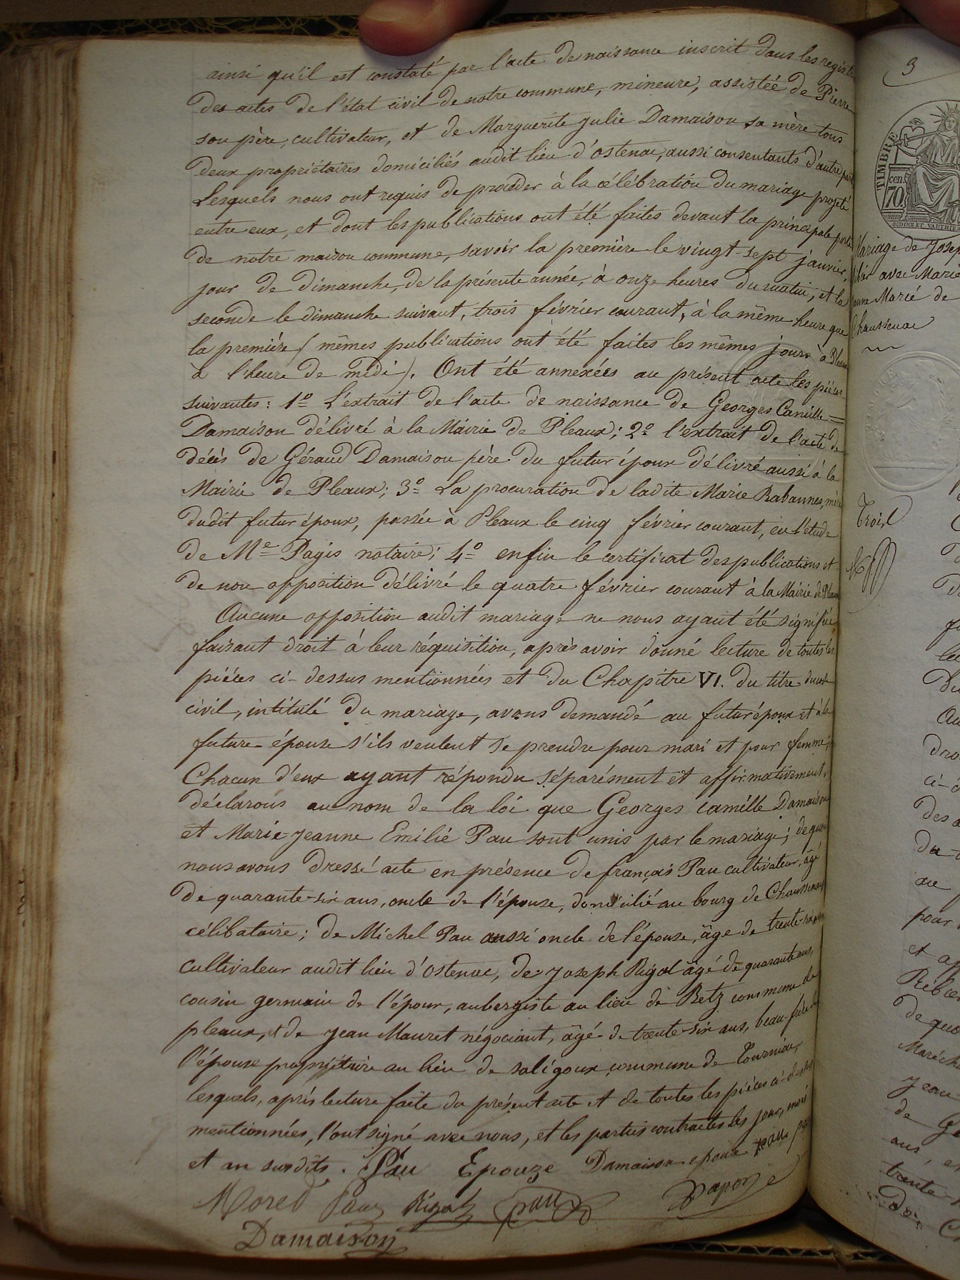 ainsi qu'il est constaté par l'acte de naissance inscrit dans les regist
des actes de l'état civil de notre commune, mineure, assistée de Pierre
son père, cultivateur, et de Marguerite Julie Damaison sa mère tous
deux propriétaires domiciliés audit lieu d'ostenac, aussi consentants d'autre part
Lesquels nous ont requis de procéder à la célébration du mariage projeté
entre eux, et dont les publications ont été faites devant la principale porte
de notre maison commune, savoir la première le vingt-sept janvier,
jour de dimanche, de la présente année, à onze heures du matin, et la
seconde le dimanche suivant, trois février courant, à la même heure que
la première (mêmes publications ont été faites les mêmes jours à
à l'heure de midi). Ont été annexées au présent acte les pièces
suivantes : 1º L'extrait de l'acte de naissance de Georges Camille
Damaison délivré à la Mairie de Pleaux; 2º l'extrait de l'acte de
décès de Géraud Damaison père du futur époux délivré aussi à la
Mairie de Pleaux; 3º La procuration de ladite Marie Rabannes, mère
dudit futur époux, passée à Pleaux le cinq février courant, en l'étude
de Me Pagis notaire; 4º enfin le certificat des publications et
de non opposition délivré le quatre février courant à la Mairie de
Aucune opposition audit mariage ne nous ayant été signifiée
faisant droit à leur réquisition, après avoir donné lecture de toutes les
pièces ci-dessus mentionnées et du Chapitre VI. du titre du code
civil, intitulé du mariage, avons demandé au futur époux et à la
future épouse s'ils veulent se prendre pour mari et pour femme,
Chacun d'eux ayant répondu séparément et affirmativement,
déclarons au nom de la loi que Georges Camille Damaison
et Marie-Jeanne Emilie Pau sont unis par le mariage; de quoi
nous avons dressé acte en présence de françois Pau cultivateur, âgé
de quarante-six ans, oncle de l'épouse, domicilié au bourg de Chaussenac
célibataire; de Michel Pau aussi oncle de l'épouse, âgé de trente
cultivateur audit lieu d'ostenac, de Joseph Rigal âgé de quarante ans,
cousin germain de l'épour, aubergiste au lieu de Retz commune de
pleaux, et de Jean Mauret négociant, âgé de trente-six ans, beau-frère de
l'épouse propriétaire au lieu de saligoux commune de Tourniac,
lesquels, après lecture faite du présent acte et de toutes les pièces ci-dessus
mentionnées, l'ont signé avec nous, et les parties contractes les jour, mois
et an susdits. Pau Epouze Damaison epoux pau
Mored Pau Rigal pau
Damaison
3
TIMBRE
cen
70
Mariage de Josep
avec Marie
Marié de
Chaussenac
Trois